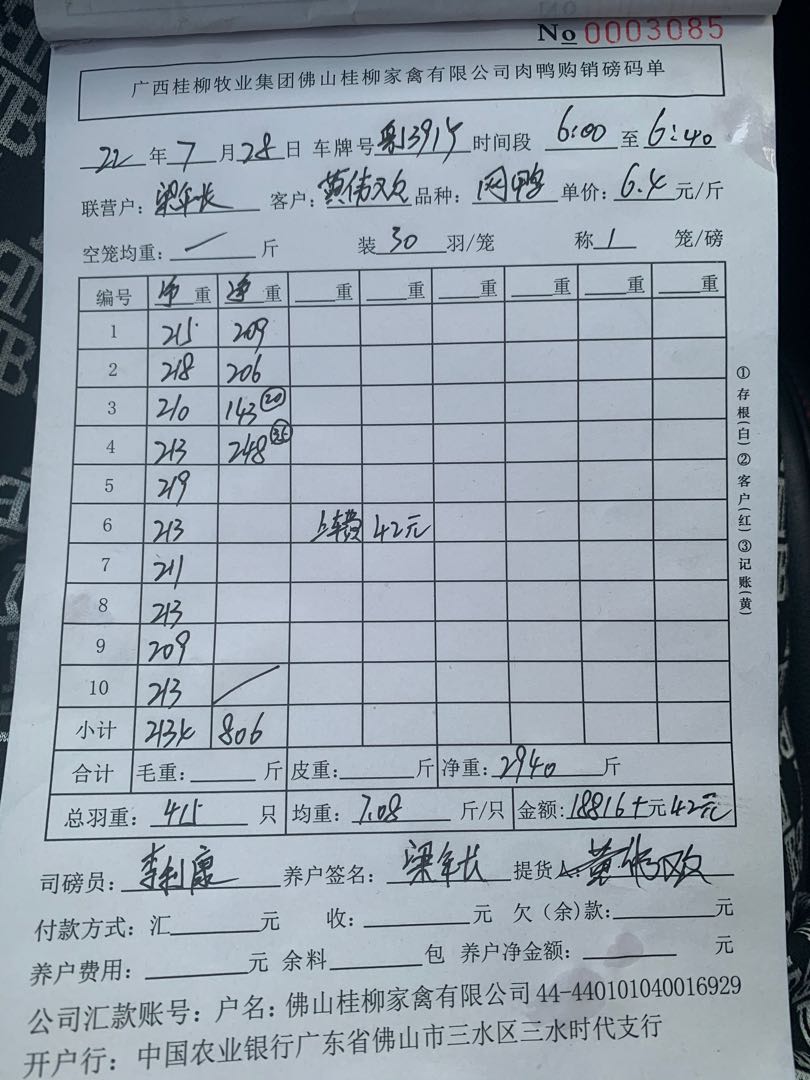 No 0003085
广西桂柳牧业集团佛山桂柳家禽有限公司肉鸭购销磅码单
22 年 7 月 28 日 车牌号 时间段 6:00 至 6:40
联营户: 梁年长 客户: 黄伟 品种: 鸭 单价: 6.4 元/斤
空笼均重: / 斤 装 30 羽/笼 称 1 笼/磅
编号 净重 净重 重 重 重 重 重 重
1 215 209
2 218 206
3 210 143 20
4 213 248 35
5 219
6 213 上车费 42元
7 211
8 213
9 209
10 213
小计 2134 806
合计 毛重: 斤 皮重: 斤 净重: 2940 斤
总羽重: 415 只 均重: 7.08 斤/只 金额: 18816+元 42元
司磅员: 李利康 养户签名: 梁年长 提货人: 黄伟
付款方式: 汇 元 收: 元 欠(余)款: 元
养户费用: 元 余料 包 养户净金额: 元
公司汇款账号: 户名: 佛山桂柳家禽有限公司 44-440101040016929
开户行: 中国农业银行广东省佛山市三水区三水时代支行
①存根(白)②客户(红)③记账(黄)